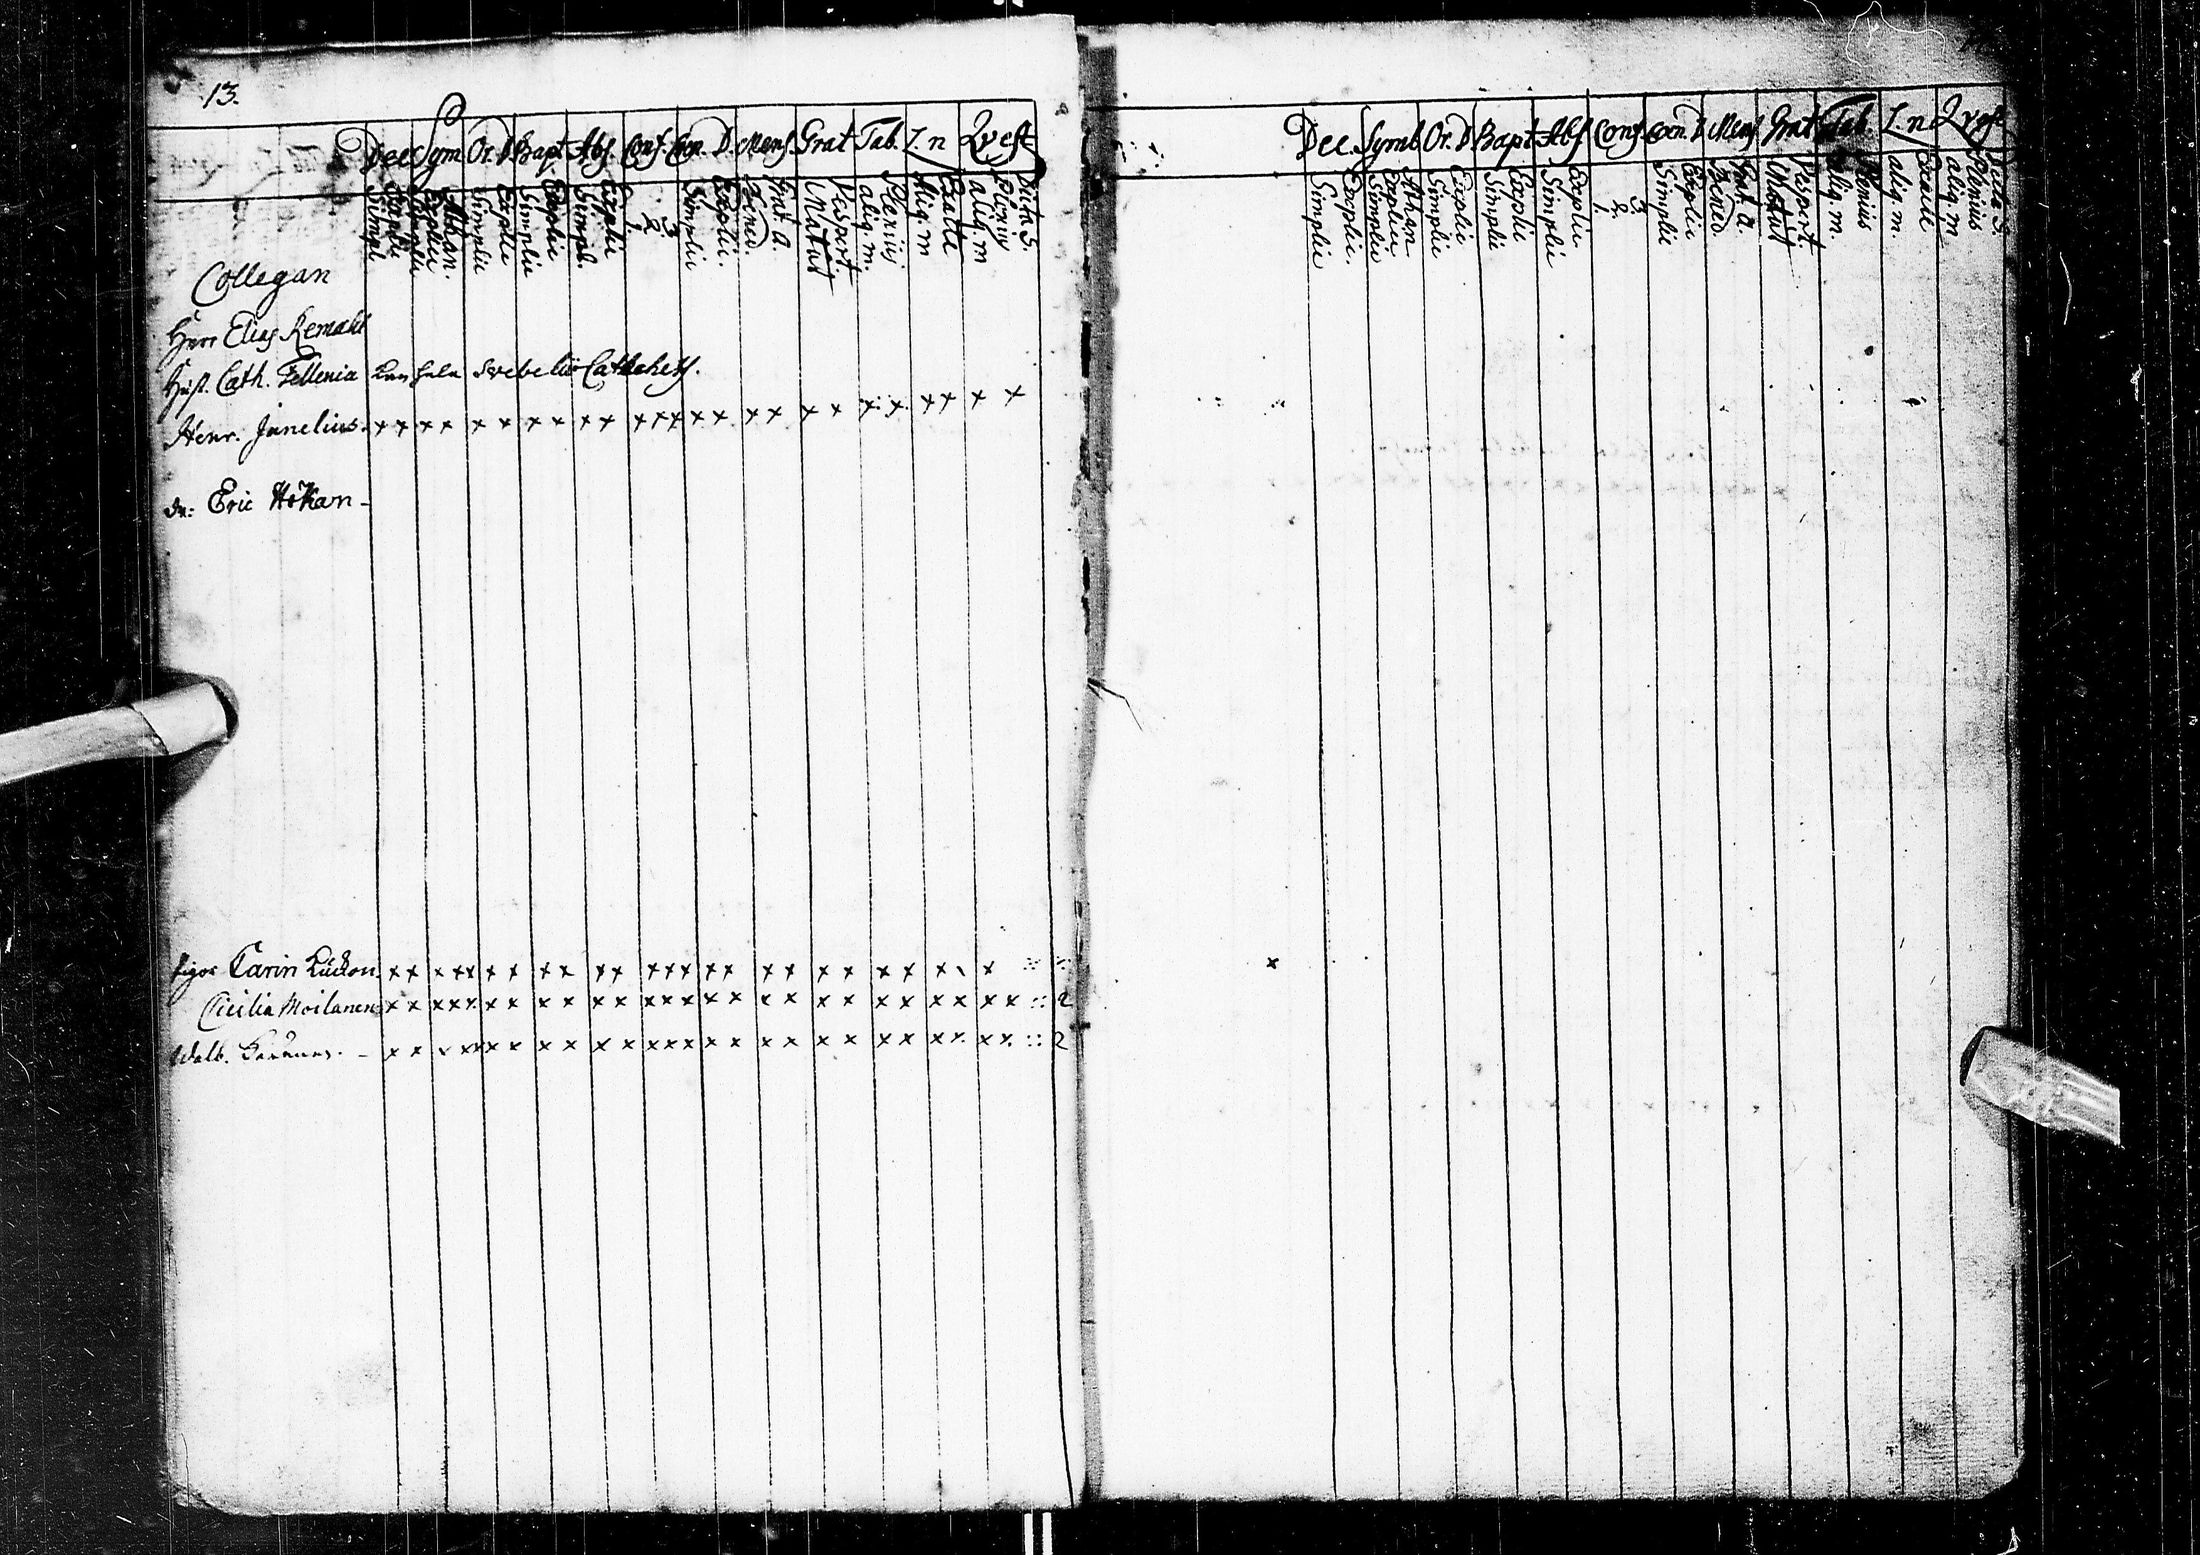 13.
Dec Sym Or. D. Bapt. Abs. Conf. Coen. D. Mens. Grat Tab. L. n Qvest
Simpl Explic Simplic Explic Athan. Simplic Explic Simplic Explic Simpl. Explic 1. 2. 3. Simplic Explic. Bened. Grat. a. Matut Vespert. aliq. m. Plenius aliq. m Exacte aliq. m Plenius Dicta S.
Collegan
Herr Elias Remahl
Hust. Cath. Fellenia kan hela Svebelii Cateches.
Henr. Junelius. x x x x x x x x x x x x x x x x x x x x x x x x x
dr: Eric Håkan -
Pigor Carin x x x x x x x x x x x x x x x x x x x x x x x
Cicilia Moilanen x x x x x x x x x x x x x x x x x x x x x x x x x x :: 2
Walb. - x x x x x x x x x x x x x x x x x x x x x x x x x x :: 2
Dec. Symb Or. D Bapt Abs Conf Coen. D Mens Grat Tab. L. n Qvest
Simplic Explic. Simplic Explic Athan Simplic Explic Simplic Explic Simplic Explic 1. 2. 3. Simplic Explic Bened. Grat. a. Matut Vespert. aliq. m. Plenius aliq. m. Exacte aliq. m Plenius Dicta S.
x